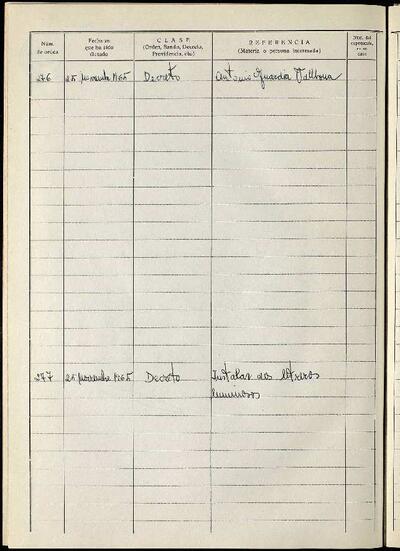 Núm.
de orden
Fecha en
que ha sido
dictado
CLASE
(Orden, Bando, Decreto,
Providencia, etc.)
REFERENCIA
(Materia o persona interesada)
Núm. del
expediente,
en su
caso
276 25 noviembre 1965 Decreto Antonio Guardia Vallhonra
277 25 noviembre 1965 Decreto Instalar dos letreros
luminosos